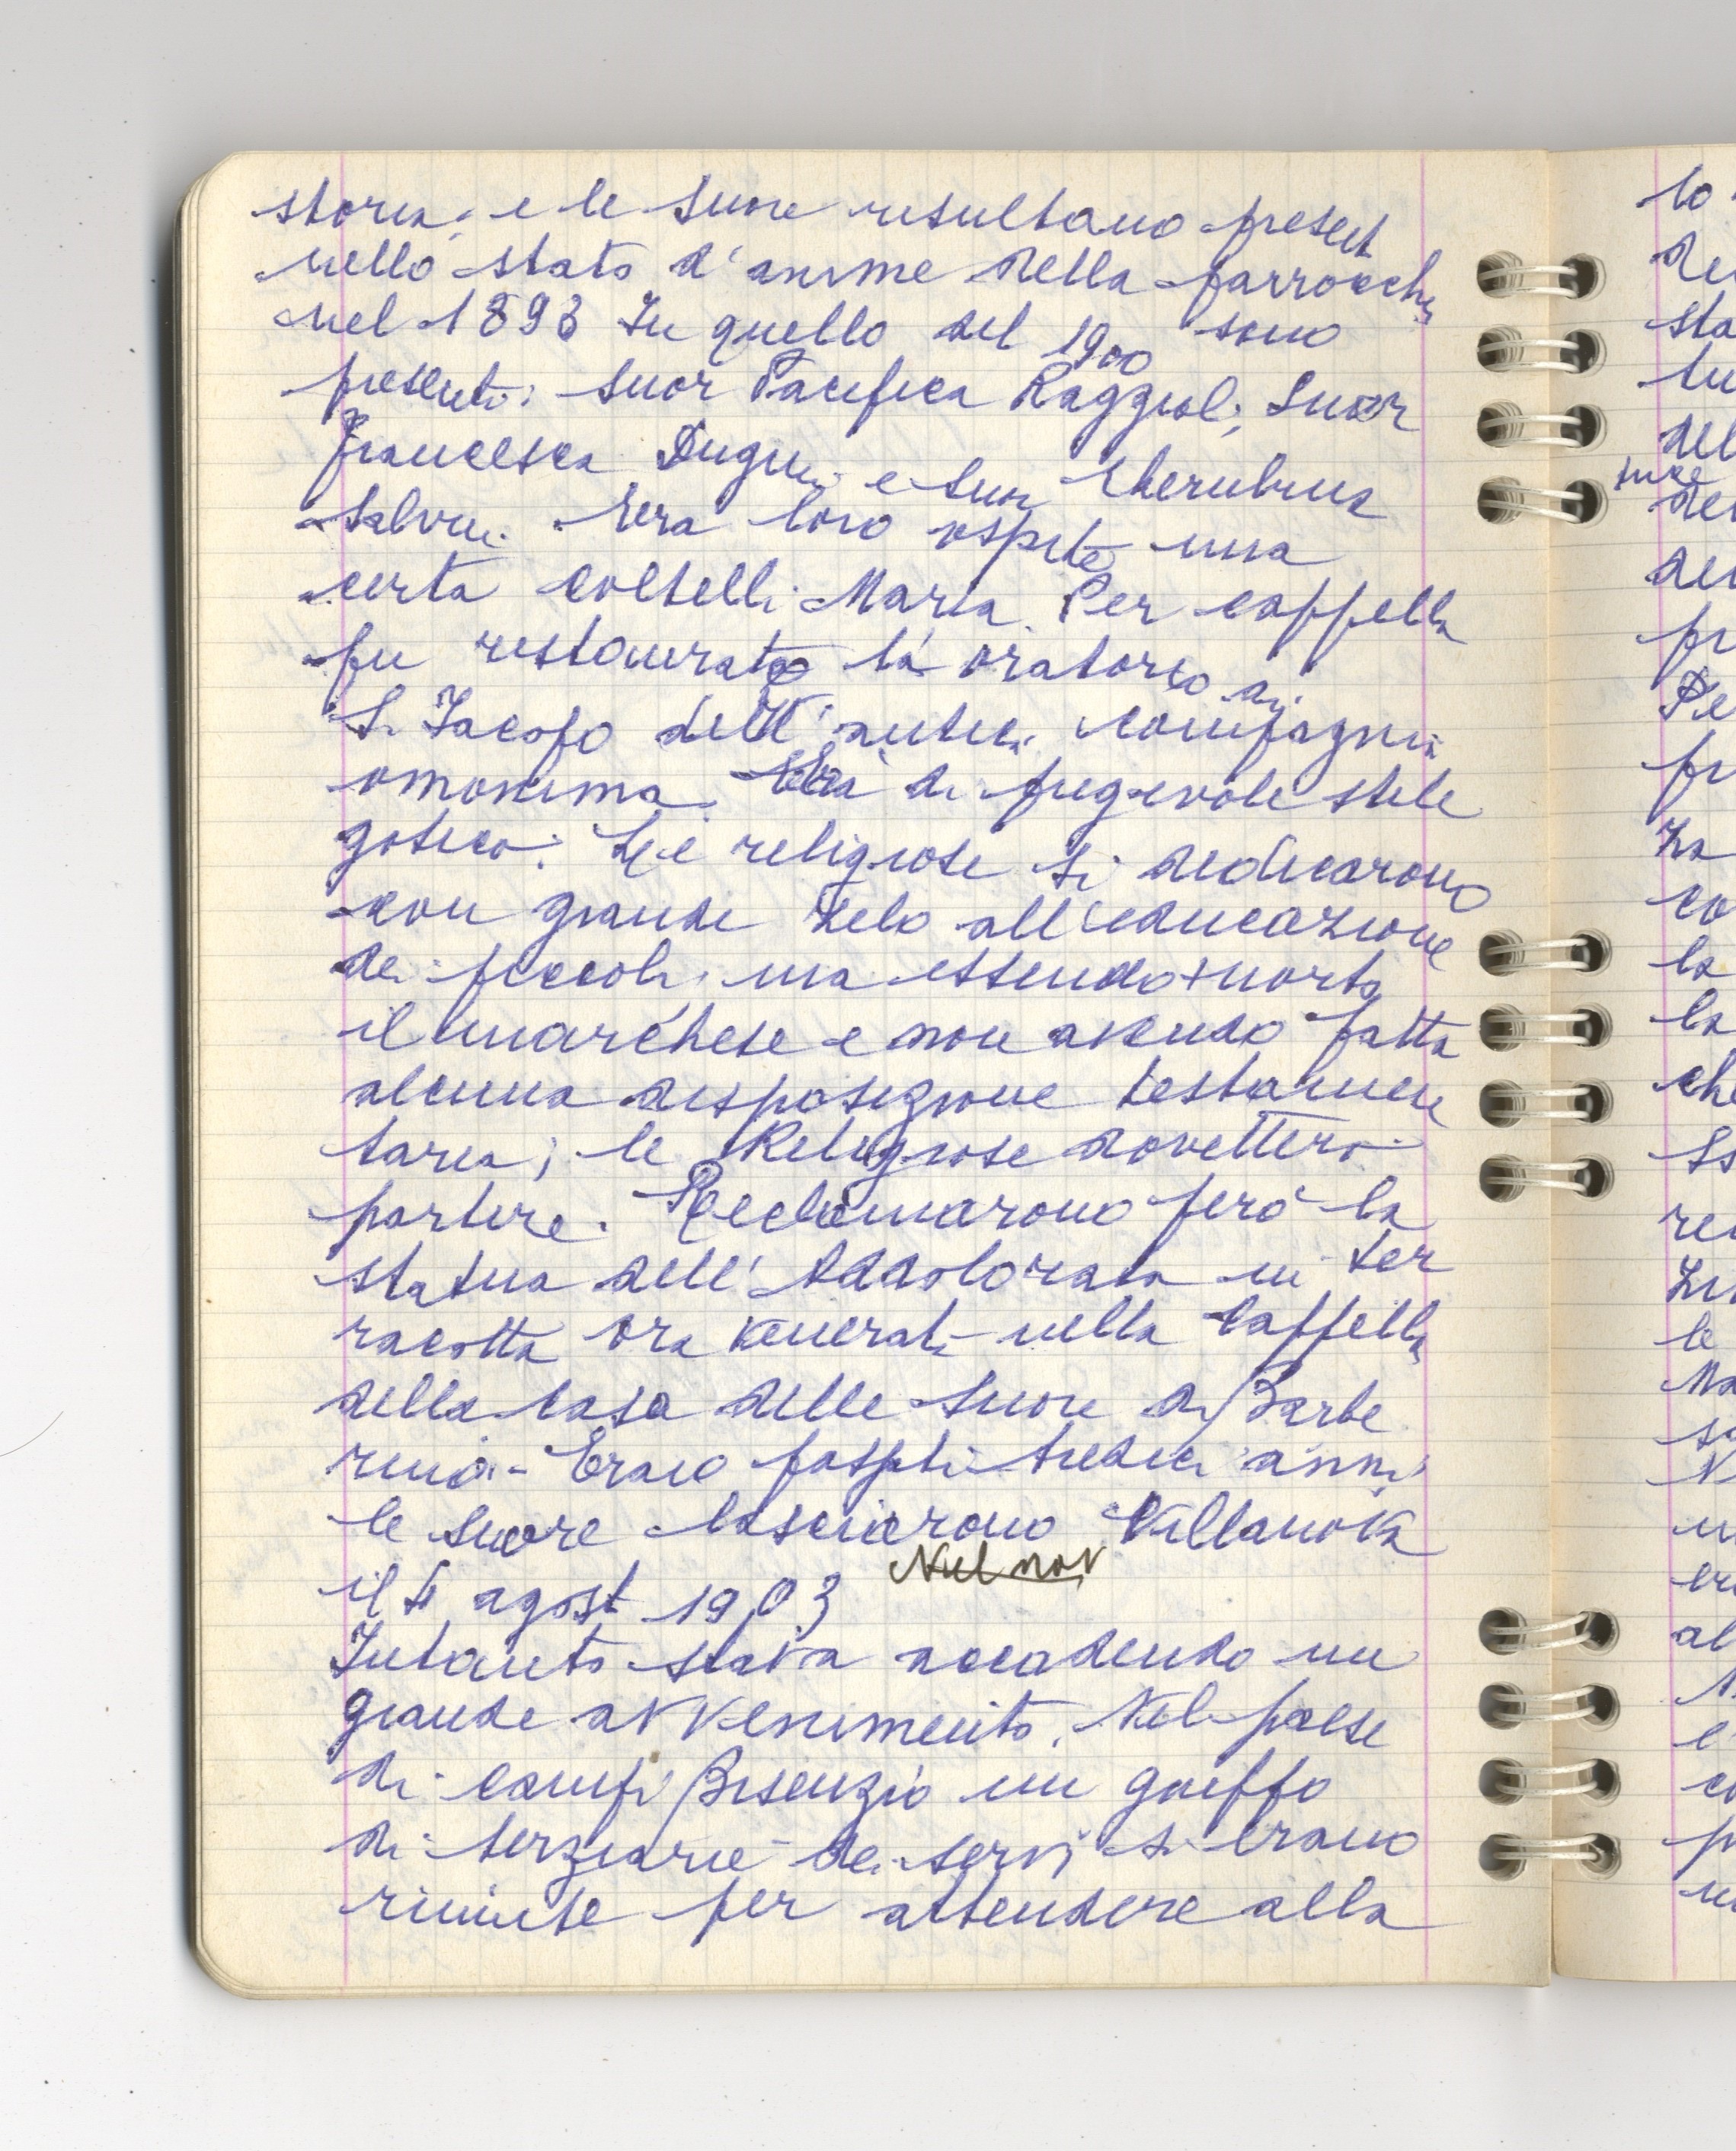 storia, e le suore risultano present
nello stato d'anime della parrocchia
nel 1893 In quello del 1900 sono
presenti: suor Pacifica Raggioli, Suor
Francesca e suor Cherubina
Salvini. Vera loro ospite una
certa Coltelli Maria. Per cappella
fu restaurato là oratorio di
S. Jacopo dell'antica compagnia
omonima. Era di pregevole stile
gotico. Le religiose si dedicarono
con grande zelo all'educazione
dei piccoli, ma essendo morto
il marchese e non avendo fatta
alcuna disposizione testamen
taria, le Religiose dovettero
partire. Reclamarono però la
statua dell'Addolorata in ter
racotta ora venerata nella Cappella
della casa delle suore di Barbe
rino - Erano passati tredici anni
le suore lasciarono Villanova
il 4 agost 1903 Nel nov
Intanto stava accadendo un
grande avvenimento. Nel paese
di Campi Bisenzio un gruppo
di terziarie dei servi si erano
riunite per attendere alla
lo
sta
del
suore
pr
pr
La
co
la
la
che
Ss
re
le
Ma
al